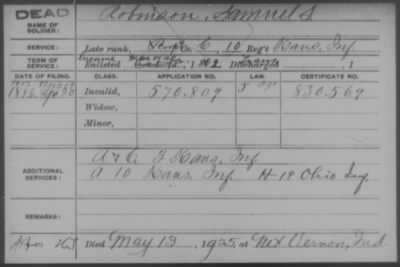 DEAD
NAME OF SOLDIER: Robinson, Samuel S
SERVICE: Late rank, Co. C, 10 Reg't Kans. Inf.
TERM OF SERVICE: Enlisted , 1 2 Discharged , 1
DATE OF FILING. CLASS. APPLICATION NO. LAW. CERTIFICATE NO.
1886, 30 Invalid, 570.809 830.569
Widow,
Minor,
ADDITIONAL SERVICES: A & C 3 Kans. Inf.
A 10 Kans. Inf H 19 Ohio Inf.
REMARKS:
Died May 13, 1925, at Mt Vernon, Ind